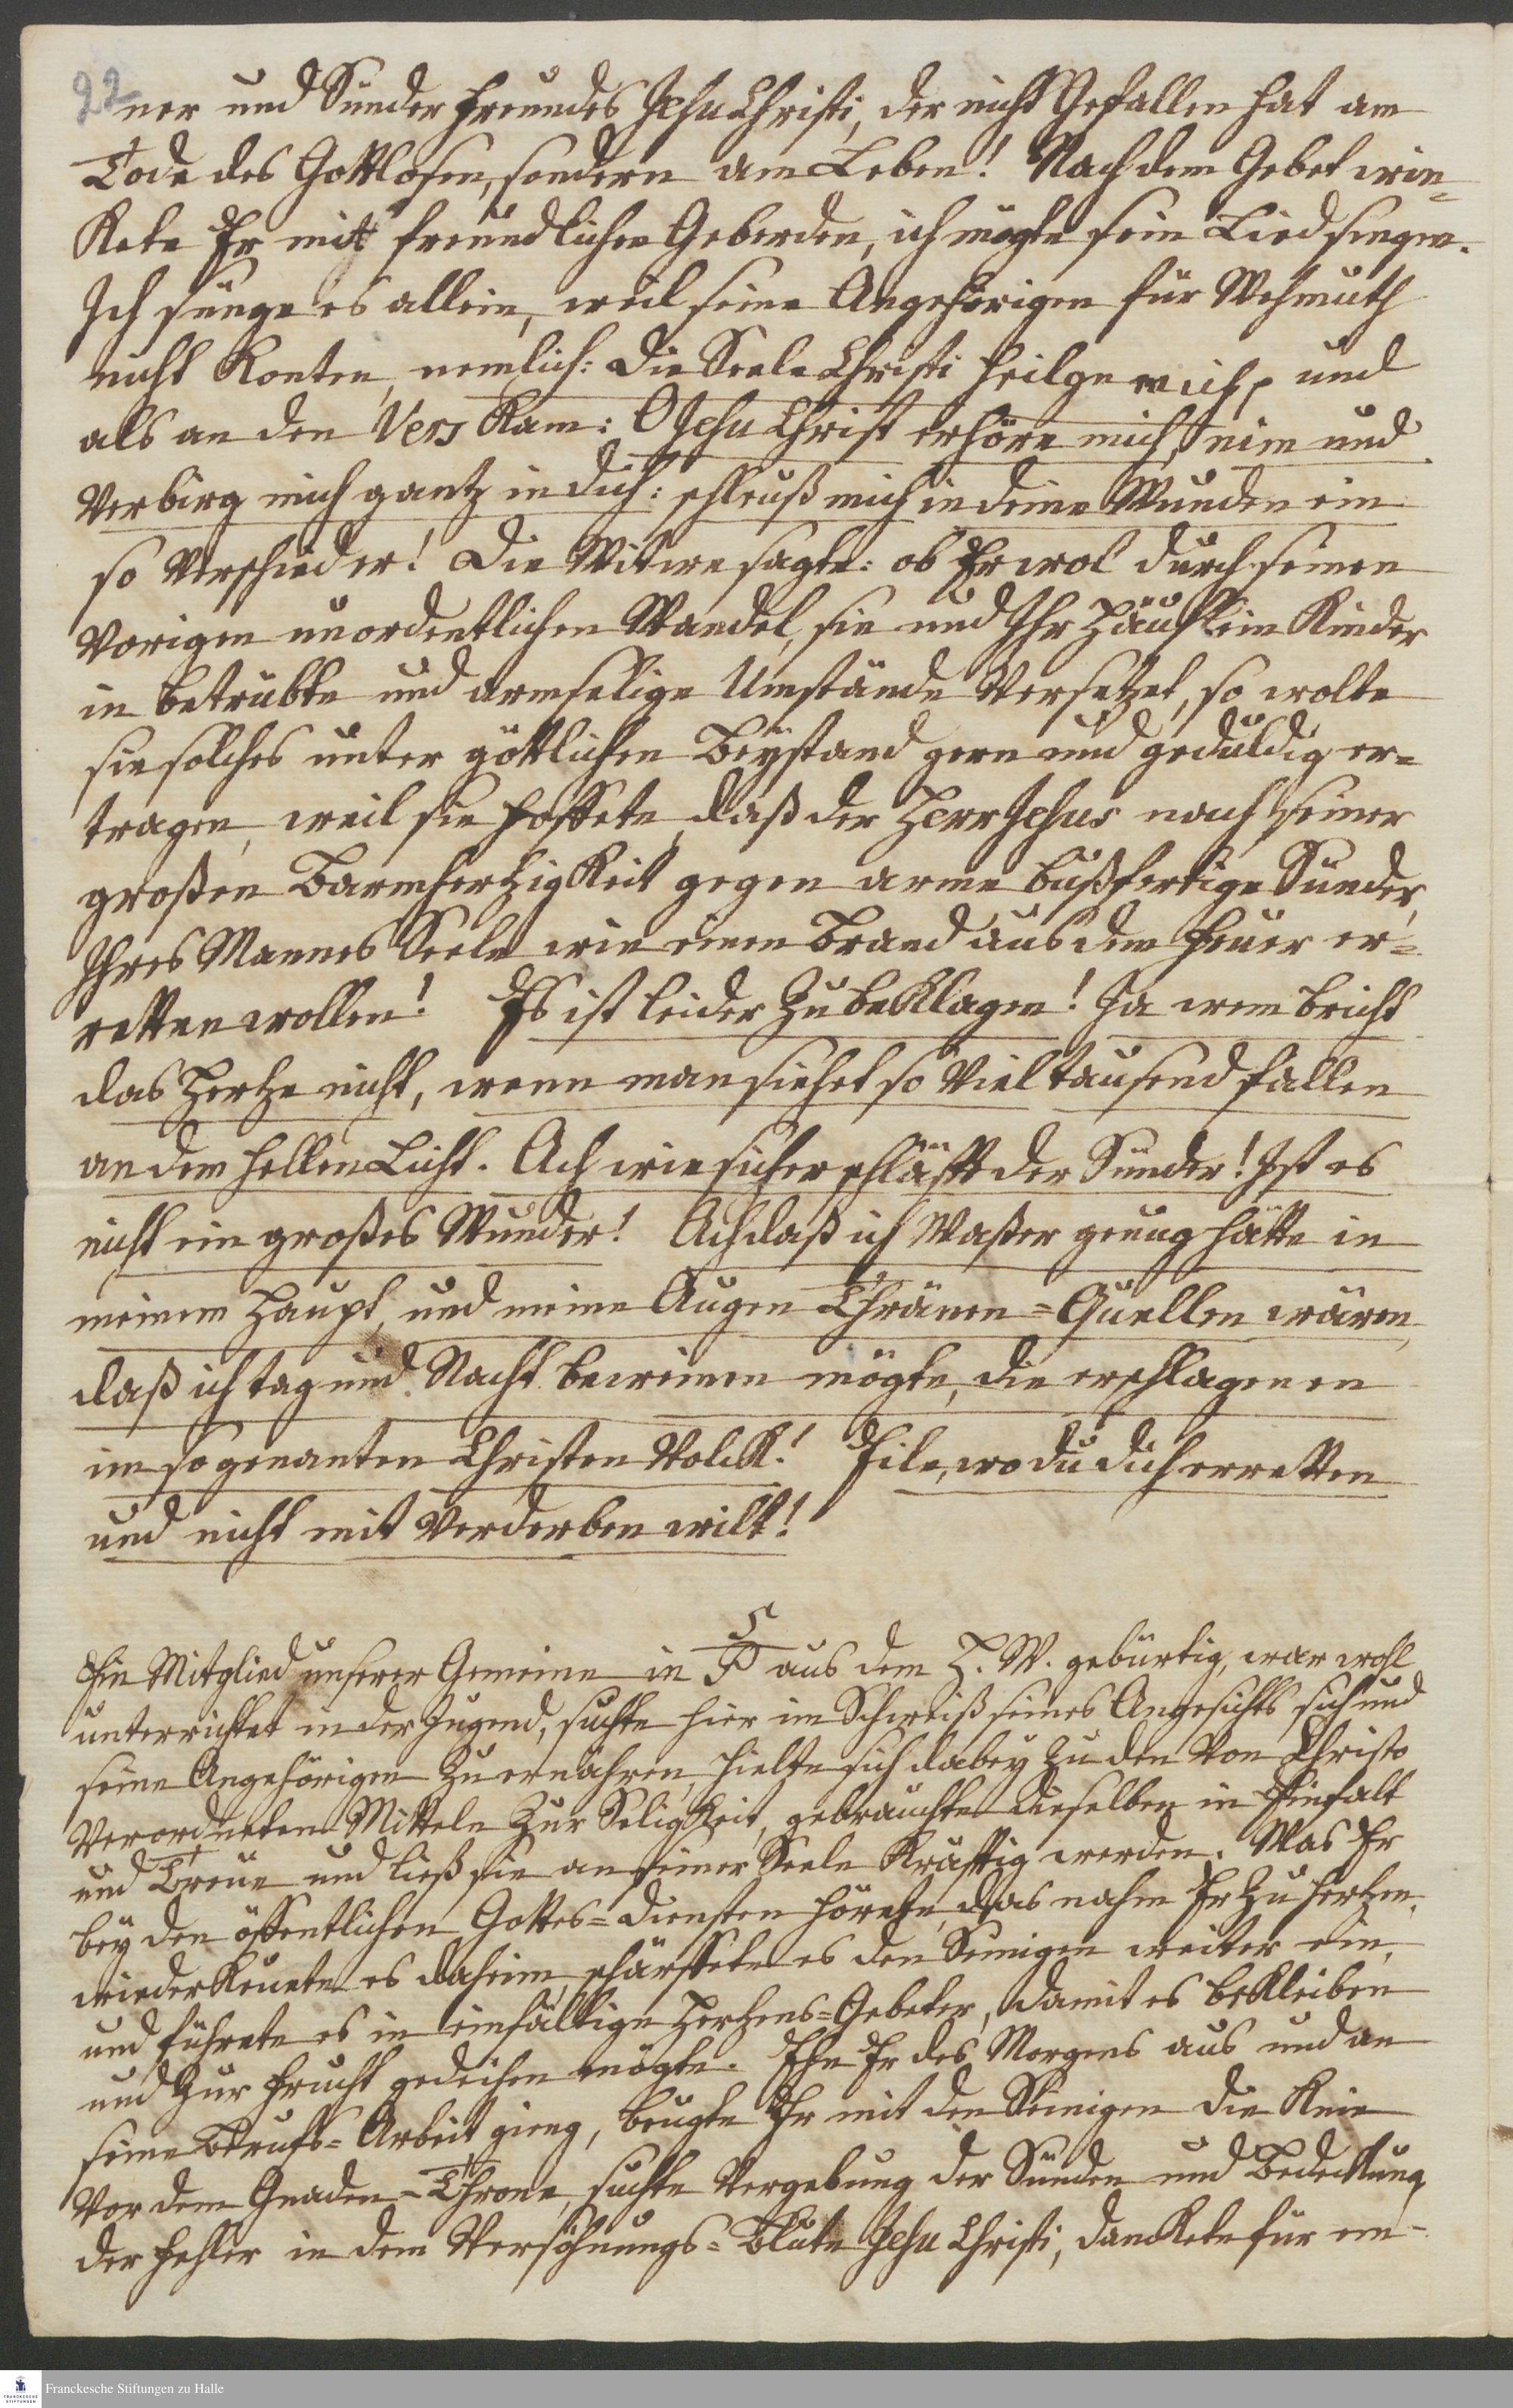 22
ner und Sünder Freundes Jesu Christi, der nicht Gefallen hat am
Tode des Gottlosen, sondern am Leben! Nach dem Gebet win-
kete Er mit freundlichen Geberden, ich mögte sein Lied singen.
Ich sunge es allein, weil seine Angehörigen für Wehmuth
nicht konten, nemlich: Die Seele Christi heilge mich, und
als an den Vers kam: O Jesu Christ erhöre mich, nim und
verbirg mich gantz in dich: schleuß mich in deine Wunden ein
so verschied er! Die Witwe sagte: ob Er wol durch seinen
vorigen unordentlichen Wandel, sie und Ihr Häuflein Kinder
in betrübte und armselige Umstände versetzet, so wolte
sie solches unter göttlichen Beystand gern und gedüldig er-
tragen, weil sie hoffete, daß der Herr Jesus nach seiner
großen Barmhertzigkeit gegen arme bußfertige Sünder,
Ihres Mannes Seele wie einen Brand aus dem Feuer er-
retten wollen! Es ist leider Zu beklagen! Ja wem bricht
das Hertze nicht, wenn man siehet so viel tausend fallen
an dem hellen Licht. Ach wie sicher schläfft der Sünder! Ist es
nicht ein großes Wunder! Ach daß ich Waßer genug hätte in
meinem Haupt, und meine Augen Thränen-Quellen wären,
daß ich tag und Nacht beweinen mögte, die erschlagenen
im so genanten Christen Volck! Eile, wo du dich erretten
und nicht mit verderben wilt!
5
Ein Mitglied unserer Gemeine in P aus dem H. W. gebürtig, war wohl
unterrichtet in der Jugend, suchte hier im Schweiß seines Angesichts sich und
seine Angehörigen Zu ernähren, hielte sich dabey Zu den von Christo
verordneten Mitteln Zur Seligkeit, gebrauchte dieselben in Einfalt
und Treue und ließ sie an seiner Seele kräfftig werden. Was Er
bey den öffentlichen Gottes-Diensten hörete, das nahm Er Zu Hertzen,
wiederkeuete es daheim, schärffete es den Seinigen weiter ein,
und führete es in einfältige Hertzens-Gebeter, damit es bekleiben
und Zur Frucht gedeihen mögte. Ehe Er des Morgens aus und an
seine Berufs-Arbeit gieng, beugte Er mit den Seinigen die Knie
vor dem Gnaden-Throne, suchte Vergebung der Sünden und Bedeckung
der Fehler in dem Versöhnungs-Blute Jesu Christi, danckete für em-
Franckesche Stiftungen zu Halle